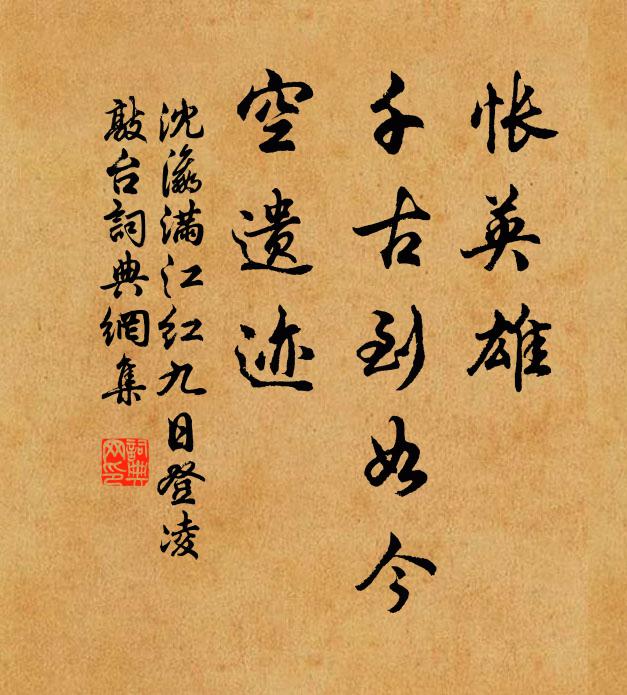 怅英雄
千古到如今
空遗迹
沈瀛满江红九日登凌
敲台詞典網集
詞典网印